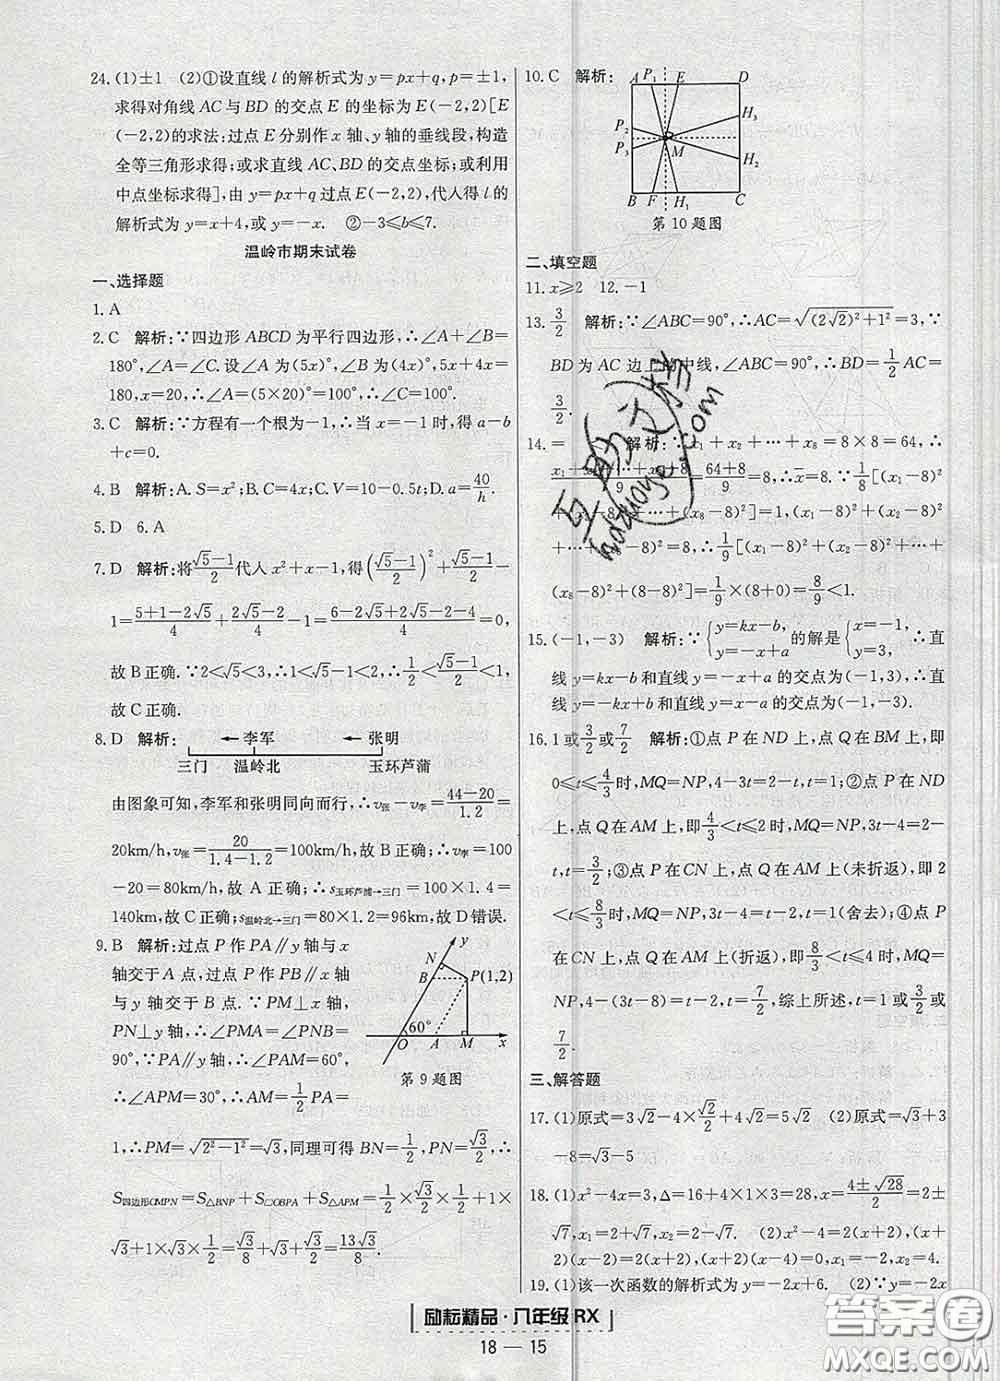 24.(1)±1　(2)①设直线 l 的解析式为 y=px+q,p=±1,
求得对角线 AC 与 BD 的交点 E 的坐标为 E(-2,2)[E
(-2,2)的求法:过点 E 分别作 x 轴、y 轴的垂线段,构造
全等三角形求得;或求直线 AC、BD 的交点坐标;或利用
中点坐标求得],由 y=px+q 过点 E(-2,2),代人得 l 的
解析式为 y=x+4,或 y=-x.　②-3≤b≤7.
温岭市期末试卷
一、选择题
1. A
2. C　解析:∵四边形 ABCD 为平行四边形,∴∠A+∠B=
180°,∠A=∠C.设∠A 为(5x)°,∠B 为(4x)°,5x+4x=
180,x=20,∴∠A=(5×20)°=100°,∴∠C=100°.
3. C　解析:∵方程有一个根为-1,∴当 x=-1 时,得 a-b
+c=0.
4. B　解析:A. S=x²;B. C=4x;C. V=10-0.5t;D. a=40/h.
5. D　6. A
7. D　解析:将(√5-1)/2代人 x²+x-1,得((√5-1)/2)²+(√5-1)/2-
1=(5+1-2√5)/4+(2√5-2)/4-1=(6-2√5+2√5-2-4)/4=0,
故 B 正确.∵2<√5<3,∴1<√5-1<2,∴1/2<(√5-1)/2<1,
故 C 正确.
8. D　解析:
←李军　←张明
三门　温岭北　玉环芦蒲
由图象可知,李军和张明同向而行,∴v张-v李=(44-20)/1.2=
20km/h,v张=20/(1.4-1.2)=100km/h,故 B 正确;∴v李=100
-20=80km/h,故 A 正确;∴s玉环芦蒲→三门=100×1.4=
140km,故 C 正确;s温岭北→三门=80×1.2=96km,故 D 错误.
9. B　解析:过点 P 作 PA∥y 轴与 x
轴交于 A 点,过点 P 作 PB∥x 轴
与 y 轴交于 B 点.∵PM⊥x 轴,
PN⊥y 轴,∴∠PMA=∠PNB=
90°,∵PA∥y 轴,∴∠PAM=60°,
∴∠APM=30°,∴AM=1/2PA=
N　y
B　P(1,2)
60°
O　A　M　x
第 9 题图
1,∴PM=√(2²-1²)=√3,同理可得 BN=1/2,PN=√3/2,∴
S四边形OMPN=S△BNP+S□OBPA+S△APM=1/2×√3/2×1/2+1×
√3+1×√3×1/2=√3/8+√3+√3/2=13√3/8.
10. C　解析:
A　P₁　E　D
H₃
P₂
P₃　M　H₂
B　F　H₁　C
第 10 题图
二、填空题
11. x≥2　12. -1
13. 3/2　解析:∵∠ABC=90°,∴AC=√((2√2)²+1²)=3,∵
BD 为 AC 边上的中线,∠ABC=90°,∴BD=1/2AC=
3/2.
14. =　解析:∵x₁+x₂+…+x₈=8×8=64,∴
(x₁+x₂+…+x₈+8)/9=(64+8)/9=8,∴x̄=8.∵1/8[(x₁-8)²+
-8)²+…+(x₈-8)²]=1,(x₁-8)²+(x₂-8)²
+…+ -8)²=8,∴1/9[(x₁-8)²+(x₂-8)²+…+
(x₈-8)²+(8-8)²]=1/9×(8+0)=8/9<1.
15. (-1,-3)　解析:∵{y=kx-b, y=-x+a 的解是{x=-1, y=3, ∴直
线 y=kx-b 和直线 y=-x+a 的交点为(-1,3),∴直
线 y=kx-b 和直线 y=x-a 的交点为(-1,-3).
16. 1 或3/2或7/2　解析:①点 P 在 ND 上,点 Q 在 BM 上,即
0≤t≤4/3时,MQ=NP,4-3t=2-t,t=1;②点 P 在 ND
上,点 Q 在 AM 上,即4/3<t≤2 时,MQ=NP,3t-4=2-
t,t=3/2;③点 P 在 CN 上,点 Q 在 AM 上(未折返),即 2
<t≤8/3时,MQ=NP,3t-4=t-2,t=1(舍去);④点 P
在 CN 上,点 Q 在 AM 上(折返),即8/3<t≤4 时,MQ=
NP,4-(3t-8)=t-2,t=7/2,综上所述,t=1 或3/2或
7/2.
三、解答题
17. (1)原式=3√2-4×√2/2+4√2=5√2　(2)原式=√3+3
-8=√3-5
18. (1)x²-4x=3,Δ=16+4×1×3=28,x=(4±√28)/2=2±
√7,x₁=2+√7,x₂=2-√7.　(2)x²-4=2(x+2),(x+
2)(x-2)=2(x+2),(x+2)(x-4)=0,x₁=-2,x₂=4.
19. (1)该一次函数的解析式为 y=-2x+6.　(2)∵y=-2x
互助文档
hdzuoye.com
励耘精品·八年级 RX
18 — 15
答案圈
MXQE.COM